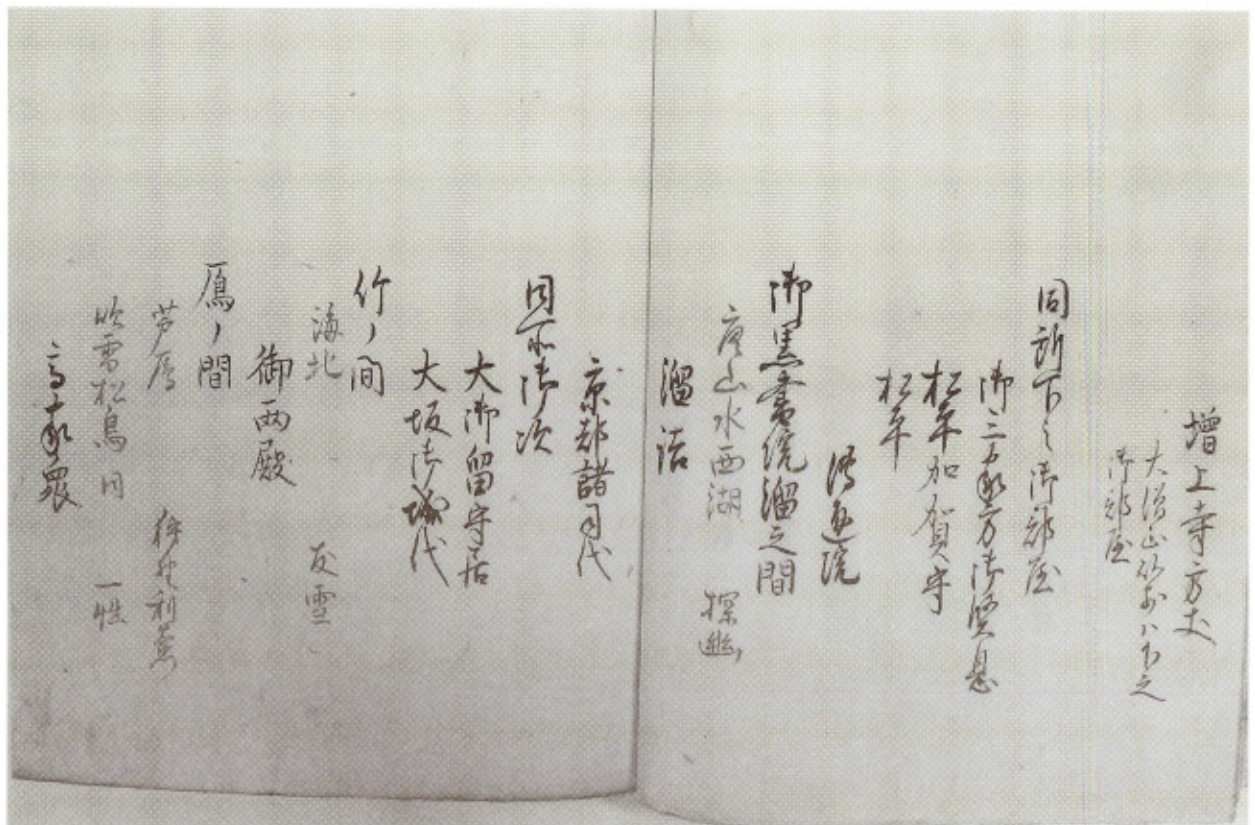 増上寺方丈
御部屋
同所下之御部屋
御三家方御賢息
松平加賀守
松平
御黒書院溜之間
唐山水西湖 探幽
溜詰
京都諸司代
同所御次
大御留守居
大坂御城代
竹ノ間
海北 友雪
御両殿
雁ノ間
芦雁
吹雪松鳥 同 一
高家衆